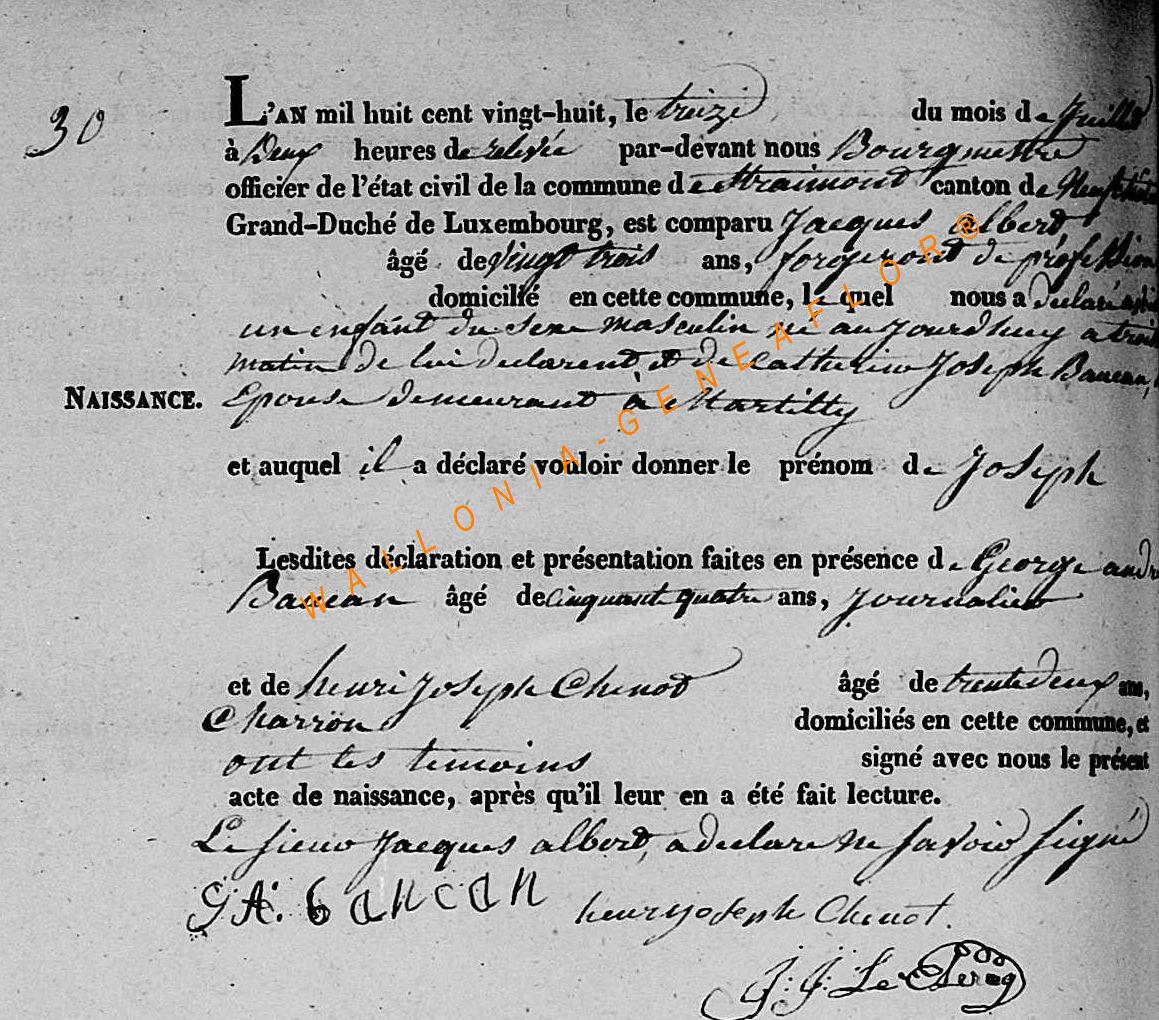 30
L'AN mil huit cent vingt-huit, le treize du mois de Juillet
à Deux heures de relevée par-devant nous Bourgmestre
officier de l'état civil de la commune de Straimont canton de
Grand-Duché de Luxembourg, est comparu Jacques albert
âgé de vingt trois ans, forgeront de profession
domicilié en cette commune, le quel nous a declaré
un enfant du sexe masculin né aujourdhuy a
matin de lui declarent et de Catherine Joseph Bancan,
NAISSANCE. Epouse demeurant à Martilly
et auquel il a déclaré vouloir donner le prénom de Joseph
Lesdites déclaration et présentation faites en présence de George
Bancan âgé de cinquant quatre ans, Journalier
et de henri Joseph Chenot âgé de trente deux ans,
Charron domiciliés en cette commune, et
ont les temoins signé avec nous le présent
acte de naissance, après qu'il leur en a été fait lecture.
Le sieur Jacques albert, a declare ne savoir signé
G A: bancan henry joseph Chenot.
J: J: Le Clercq
WALLONIA-GENEAFLOR®